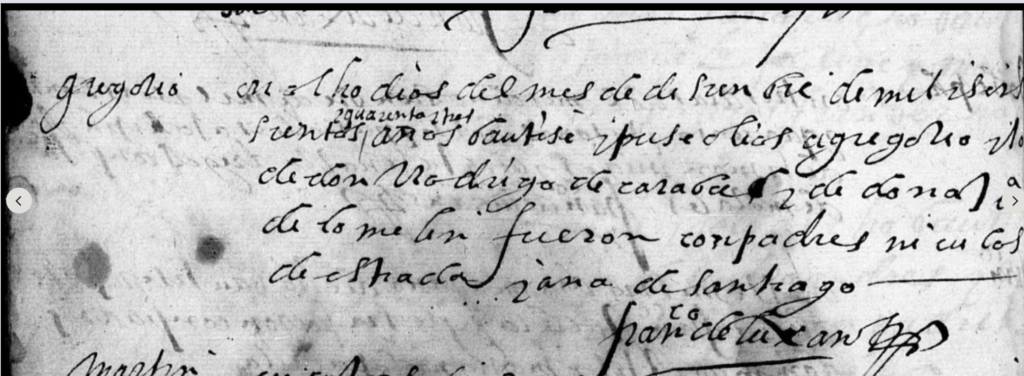 gregorio
en ocho dias del mes de disienbre de mil i seis
sientos y quarenta i tres años bautise i puse olios a gregorio ijo
de don Rodrigo de carabaxal i de dona
de lomelin fueron conpadres niculas
de estrada i ana de santiago
fran.co de luxan
martin